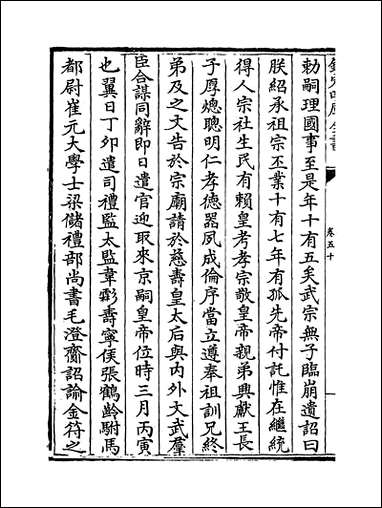 欽定四庫全書
卷五十
勅嗣理國事至是年十有五矣武宗無子臨崩遺詔曰
朕紹承祖宗丕業十有七年有孤先帝付託惟在繼統
得人宗社生民有賴皇考孝宗敬皇帝親弟興獻王長
子厚熜聰明仁孝德器夙成倫序當立遵奉祖訓兄終
弟及之文告於宗廟請於慈壽皇太后與内外文武羣
臣合謀同辭即日遣官迎取來京嗣皇帝位時三月丙寅
也翼日丁夘遣司禮監太監韋霦壽寧侯張鶴齡駙馬
都尉崔元大學士梁儲禮部尚書毛澄齎詔諭金符之